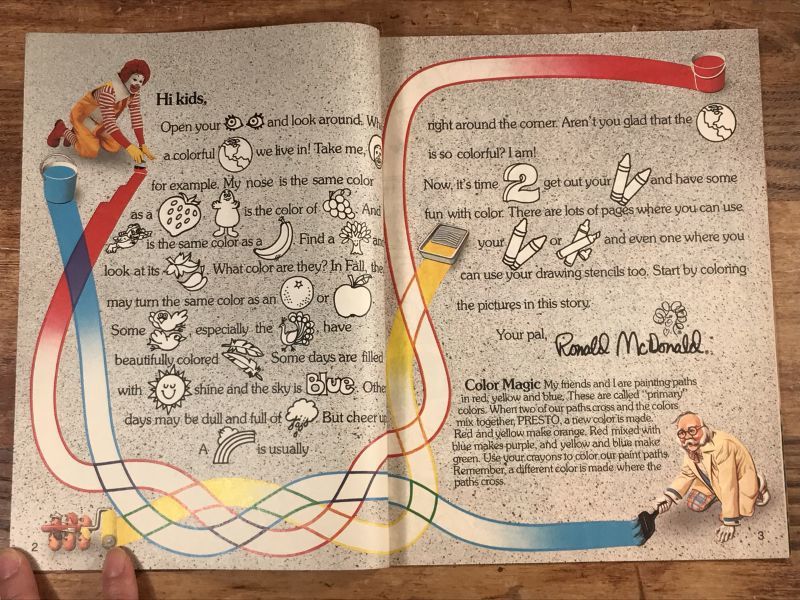 Hi kids,
Open your and look around. Wh
a colorful we live in! Take me,
for example. My nose is the same color
as a is the color of . And
is the same color as a . Find a an
look at its . What color are they? In Fall, the
may turn the same color as an or
Some , especially the have
beautifully colored . Some days are filled
with shine and the sky is Blue. Othe
days may be dull and full of . But cheer u
A is usually
2
right around the corner. Aren't you glad that the
is so colorful? I am!
Now, it's time 2 get out your and have some
fun with color. There are lots of pages where you can use
your or and even one where you
can use your drawing stencils too. Start by coloring
the pictures in this story.
Your pal,
Ronald McDonald
Color Magic My friends and I are painting paths
in red, yellow and blue. These are called "primary"
colors. When two of our paths cross and the colors
mix together, PRESTO, a new color is made.
Red and yellow make orange. Red mixed with
blue makes purple, and yellow and blue make
green. Use your crayons to color our paint paths.
Remember, a different color is made where the
paths cross.
3